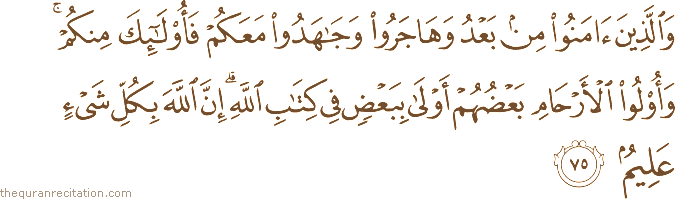 وَٱلَّذِينَ ءَامَنُوا۟ مِنۢ بَعْدُ وَهَاجَرُوا۟ وَجَـٰهَدُوا۟ مَعَكُمْ فَأُو۟لَـٰٓئِكَ مِنكُمْ ۚ
وَأُو۟لُوا۟ ٱلْأَرْحَامِ بَعْضُهُمْ أَوْلَىٰ بِبَعْضٍ فِى كِتَـٰبِ ٱللَّهِ ۗ إِنَّ ٱللَّهَ بِكُلِّ شَىْءٍ
عَلِيمٌۢ ٧٥
thequranrecitation.com